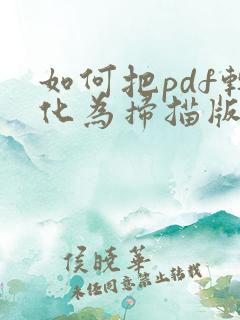 如何把pdf轉
化為掃描版
侯曉華
未任同意禁止轉載